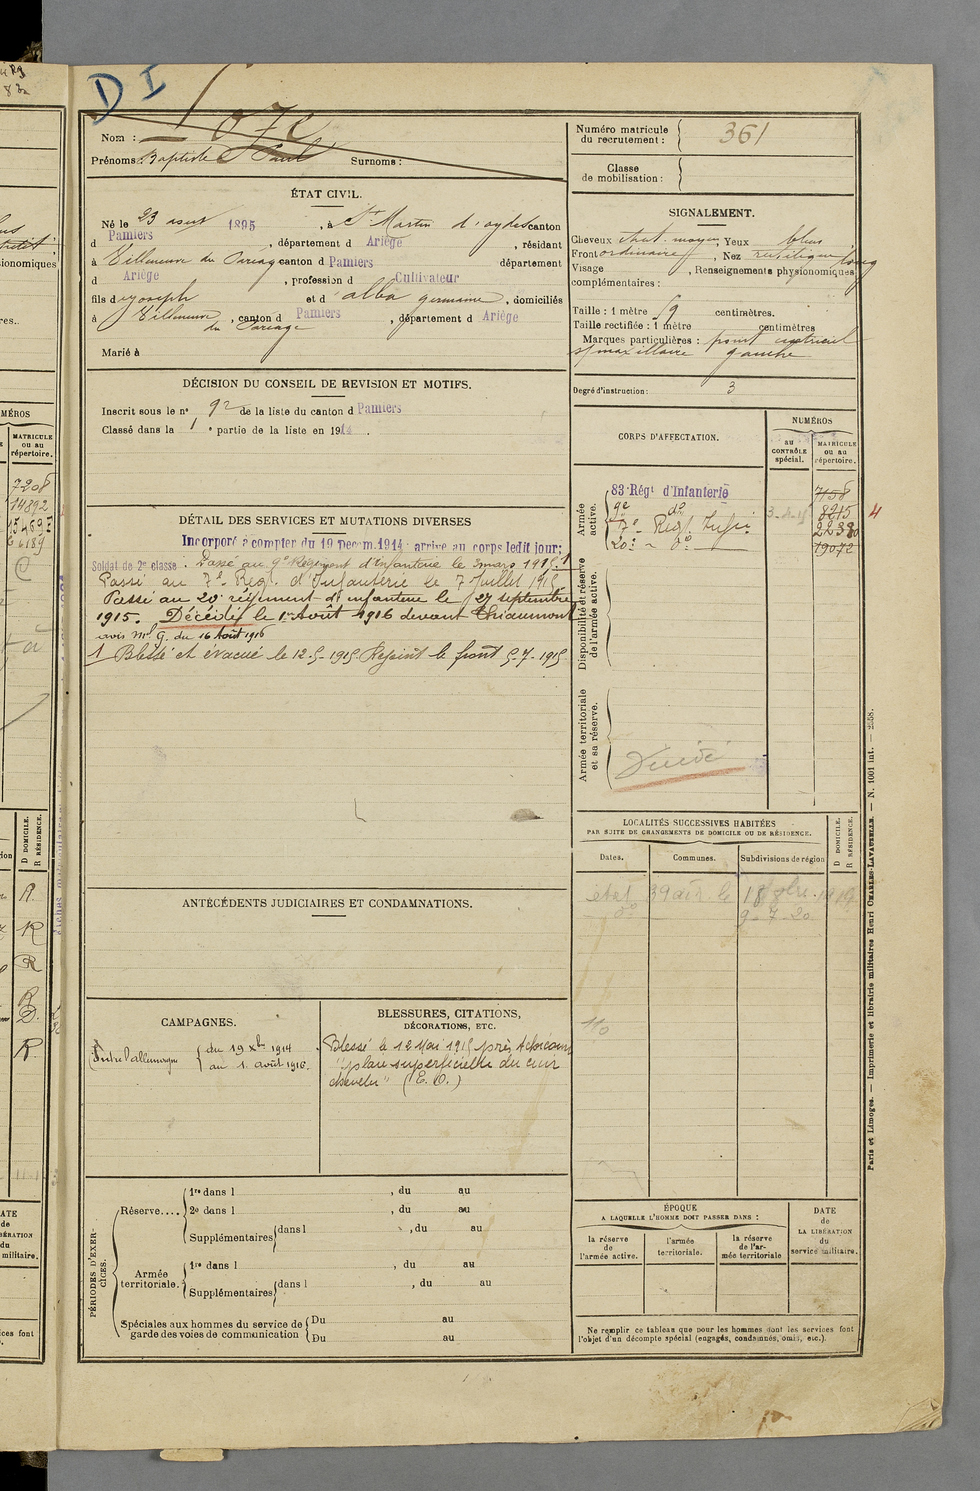 D I
Nom :
Prénoms : Baptiste Paul Surnoms :
Numéro matricule
du recrutement : 361
Classe
de mobilisation :
ÉTAT CIVIL.
Né le 23 août 1895, à St Martin d'oydes canton
d Pamiers, département d Ariège, résidant
à Villeneuve du Paréage canton d Pamiers département
d Ariège, profession d Cultivateur
fils d Joseph et d alba germaine, domiciliés
à Villeneuve du Paréage, canton d Pamiers, département d Ariège
Marié à
SIGNALEMENT.
Cheveux chat. moyen Yeux bleus
Front ordinaire, Nez rectiligne
Visage long, Renseignements physionomiques
complémentaires :
Taille : 1 mètre 59 centimètres.
Taille rectifiée : 1 mètre centimètres
Marques particulières : point
s/ maxillaire gauche
Degré d'instruction : 3
DÉCISION DU CONSEIL DE REVISION ET MOTIFS.
Inscrit sous le no 92 de la liste du canton d Pamiers
Classé dans la 1e partie de la liste en 1914.
CORPS D'AFFECTATION.
NUMÉROS
au
CONTRÔLE
spécial.
MATRICULE
ou au
répertoire.
Armée
active.
83e Régt d'Infanterie 7158
9e do 8215 4
7e Régt Infie 22380
20e - do 19072
Disponibilité et réserve
de l'armée active.
Armée territoriale
et sa réserve.
Décédé
DÉTAIL DES SERVICES ET MUTATIONS DIVERSES
Incorporé à compter du 19 Décem. 1914 : arrivé au corps ledit jour ;
Soldat de 2e classe. Passé au 9e Régiment d'Infanterie le 3 mars 1915. 1
Passé au 7e Régt d'Infanterie le 7 Juillet 1915
Passé au 20e régiment d'infanterie le 27 septembre
1915. Décédé le 1er Août 1916 devant Thiaumont
avis Mel G. du 16 Août 1916
1 Blessé et évacué le 12-5-1915 Rejoint le front 5-7-1915
LOCALITÉS SUCCESSIVES HABITÉES
PAR SUITE DE CHANGEMENTS DE DOMICILE OU DE RÉSIDENCE.
Dates.
Communes.
Subdivisions de région
D DOMICILE.
R RÉSIDENCE.
état 39 le 18 8bre 1919
do 9-7-20
ANTÉCÉDENTS JUDICIAIRES ET CONDAMNATIONS.
CAMPAGNES.
Contre l'allemagne { du 19 Xbre 1914
au 1. août 1916.
BLESSURES, CITATIONS,
DÉCORATIONS, ETC.
Blessé le 12 Mai 1915 près
"plaie superficielle du cuir
chevelu"
PÉRIODES D'EXERCICES.
Réserve....
1re dans l , du au
2e dans l , du au
Supplémentaires dans l , du au
Armée
territoriale.
1re dans l , du au
Supplémentaires dans l , du au
Spéciales aux hommes du service de
garde des voies de communication
Du au
Du au
ÉPOQUE
A LAQUELLE L'HOMME DOIT PASSER DANS :
la réserve
de
l'armée active.
l'armée
territoriale.
la réserve
de l'armée territoriale
DATE
de
LA LIBÉRATION
du
service militaire.
Ne remplir ce tableau que pour les hommes dont les services font
l'objet d'un décompte spécial (engagés, condamnés, omis, etc.).
Paris et Limoges. — Imprimerie et librairie militaires Henri CHARLES-LAVAUZELLE. — N. 1001 int. — 2358.